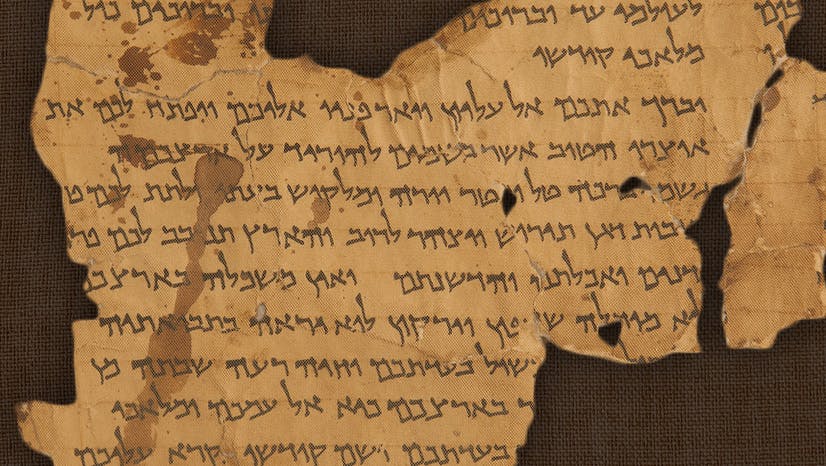 לעולמי עד וברוכים וברוכים כול
מלאכי קודשו
יברך אתכם אל עליון ויאר פניו אליכם ויפתח לכם את
אוצרו הטוב אשר בשמים להוריד על ארצכם
גשמי ברכה טל ומטר יורה ומלקוש בעתו ולתת לכם
בות דגן תירוש ויצהר לרוב והארץ תנובב לכם פרי
דנים ואכלתם והדשנתם ואין משכלה בארצכם
לא מוחלה שדפון וירקון לוא יראה בתבואתיה
שול בעדתכם וחיה רעה שבתה מן
ר בארצכם כיא אל עמכם ומלאכי
בעדתכם ושם קודשו נקרא עליכם